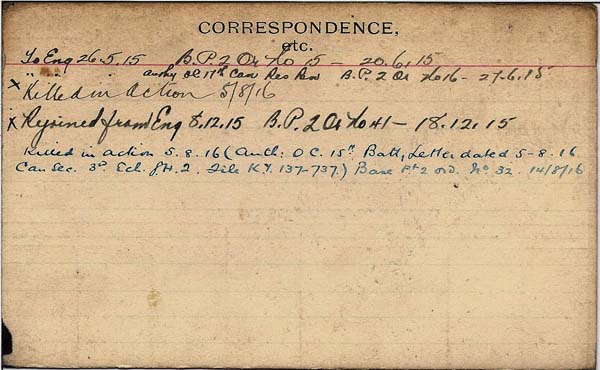 CORRESPONDENCE,
etc.
To Eng 26.5.15 B.P.2 Or No 15 — 20.6.15
" " " authy OC 17th Can Res Bn B.P.2 Or No 16 - 27.6.15
x Killed in action 5/8/16
x Rejoined from Eng 8.12.15 B.P.2 Or No 41 — 18.12.15
Killed in action 5.8.16 (Auth: O.C. 15th Batt, Letter dated 5-8-16
Can Sec. 3rd Ech. G.H.Q. File K.Y. 137-737.) Base Pt 2 ord. No 32. 14/8/16